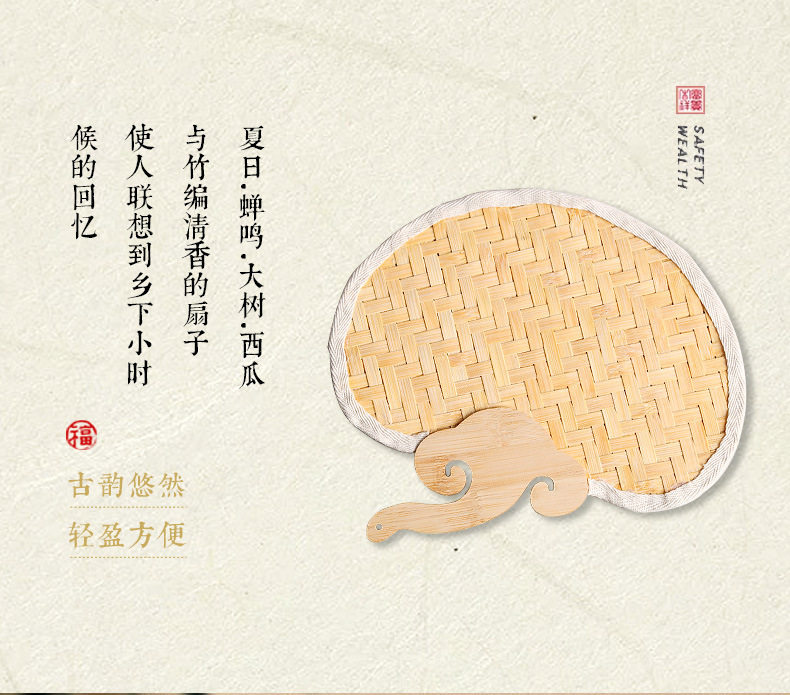 夏日·蝉鸣·大树·西瓜
与竹编清香的扇子
使人联想到乡下小时
候的回忆
福
古韵悠然
轻盈方便
SAFETY
WEALTH